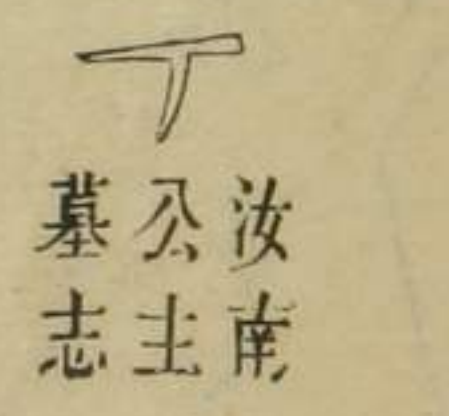 丁
汝南
公主
墓志